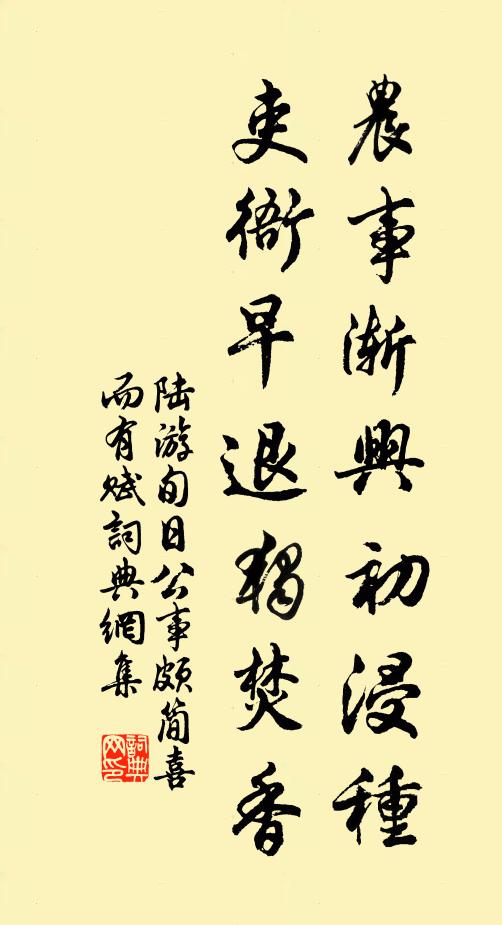 農事漸興初浸種
吏衙早退獨焚香
陆游旬日公事頗簡喜
而有赋詞典網集
詞典网印